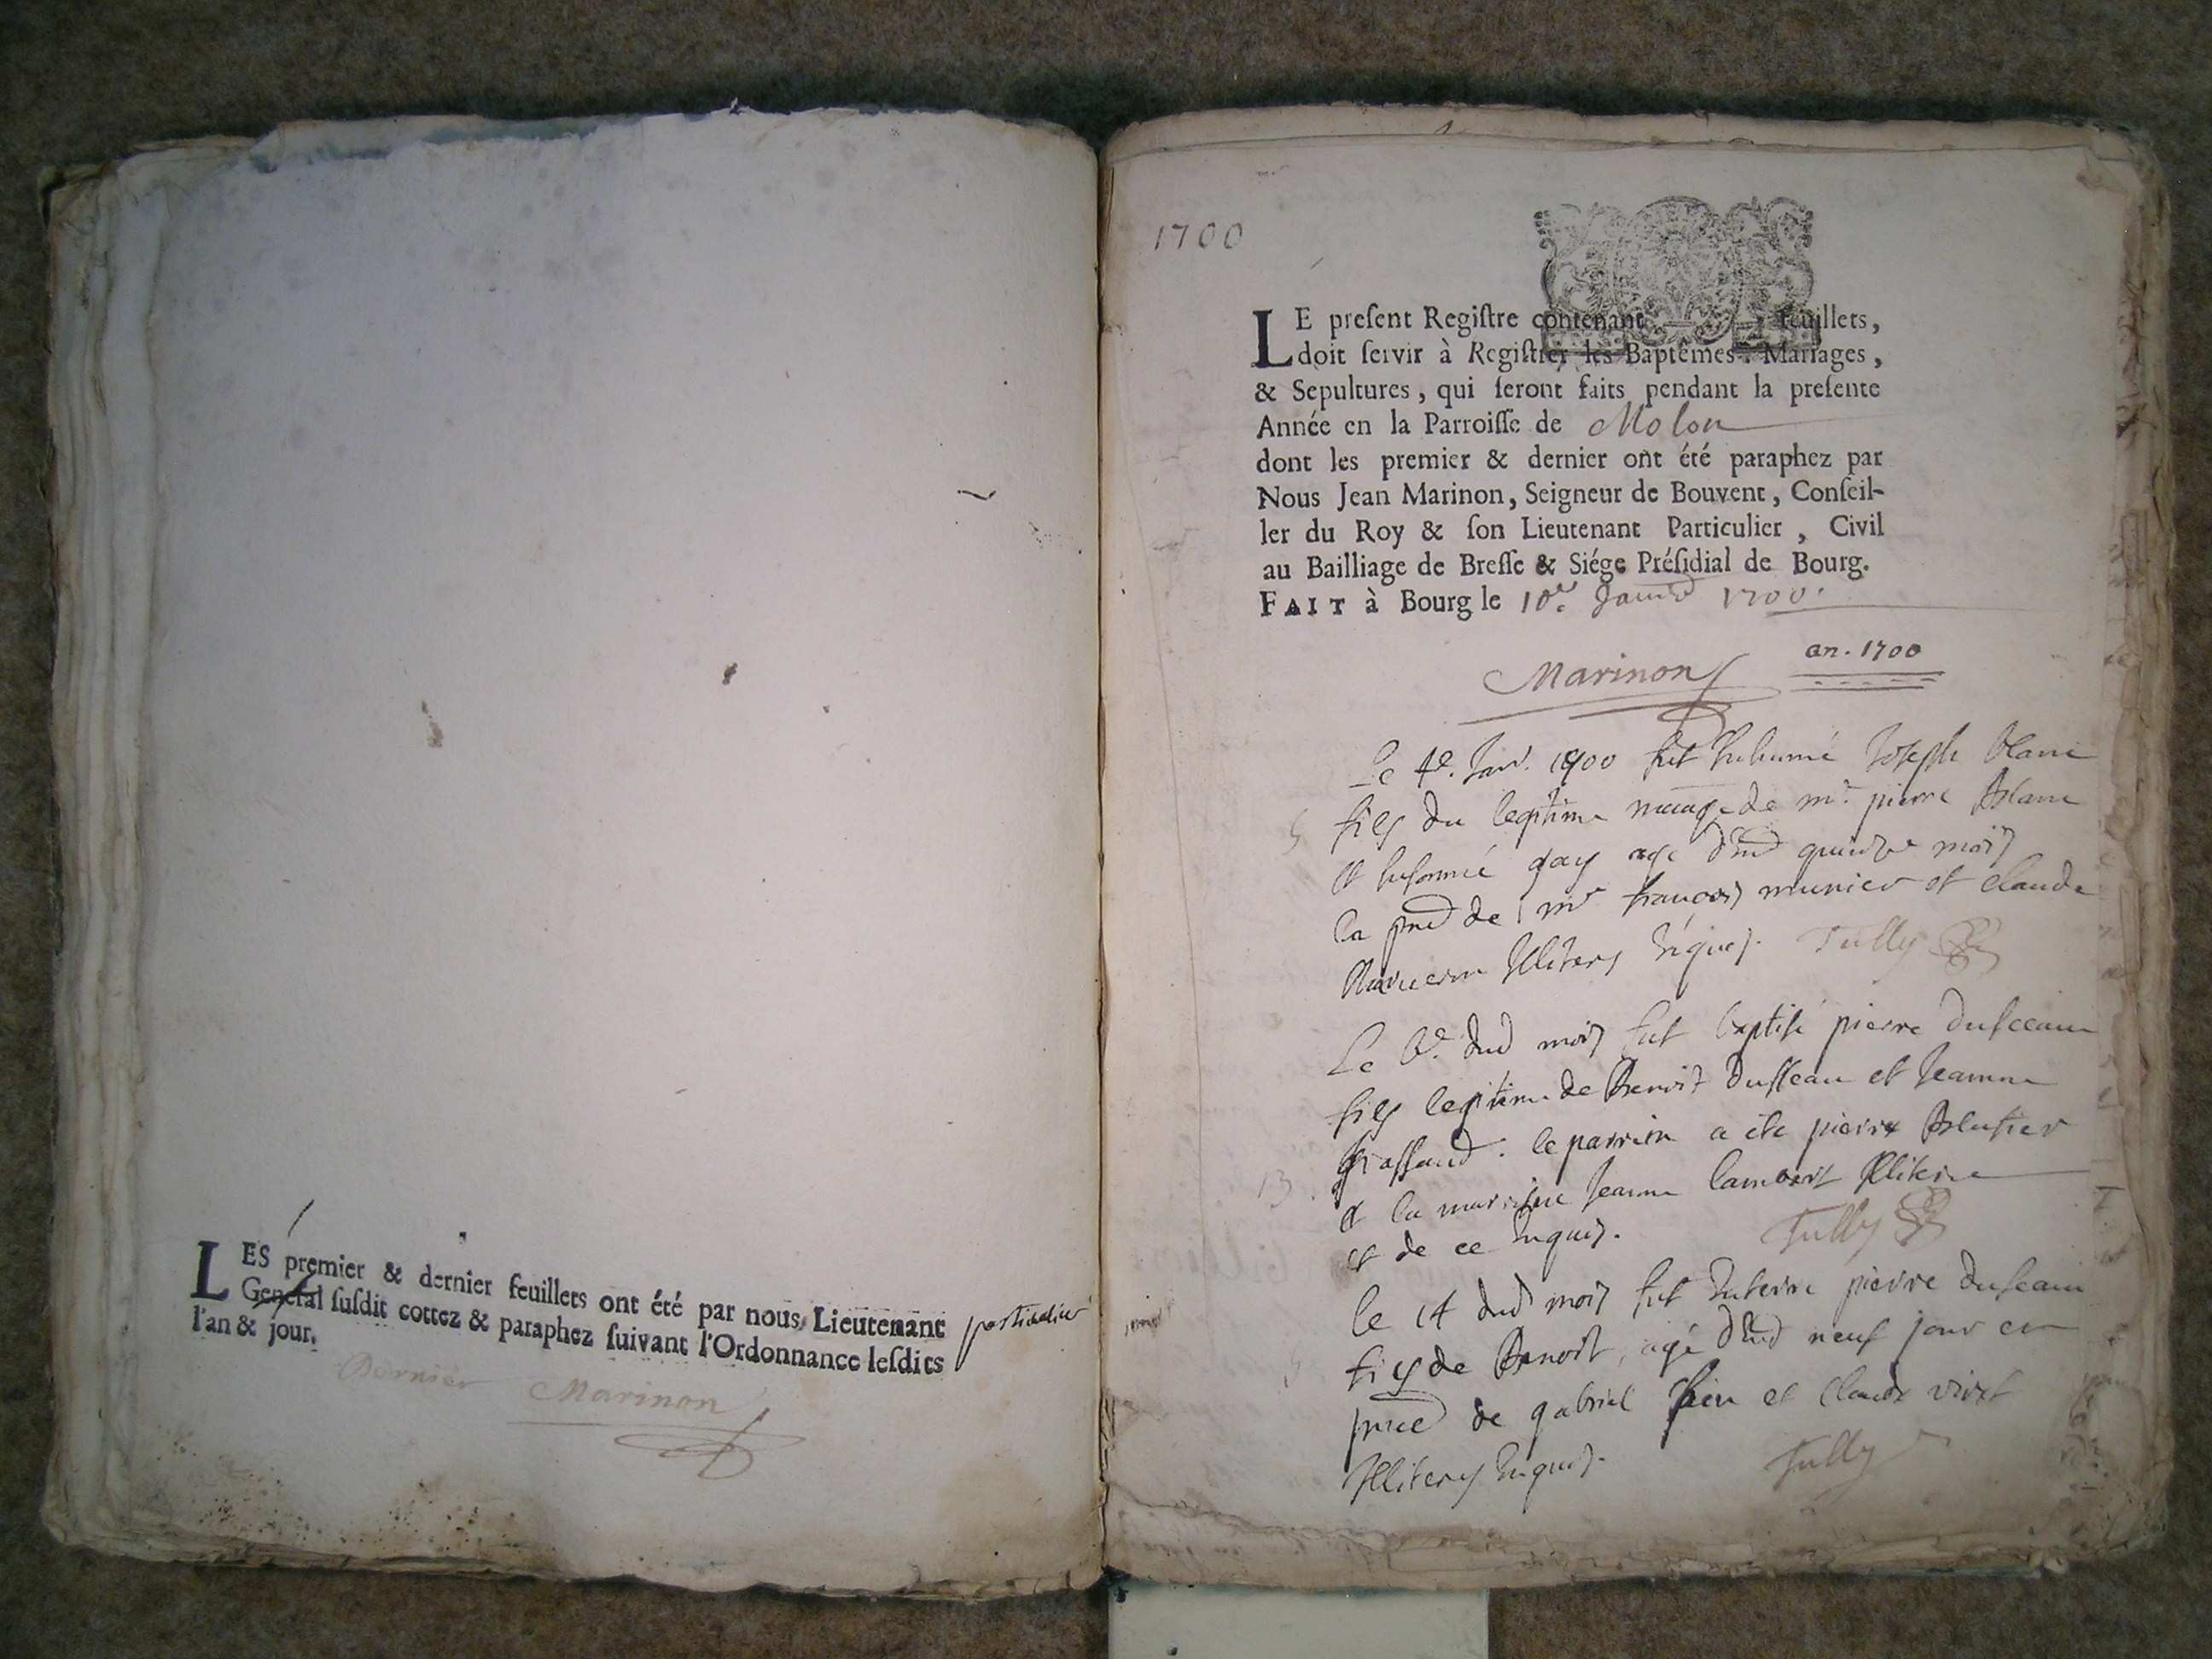 LES premier & dernier feuillets ont été par nous, Lieutenant
General susdit cottez & paraphez suivant l'Ordonnance lesdits particulier
l'an & jour.
Dernier Marinon
1700
LE present Registre contenant feuillets,
doit servir à Registrer les Baptêmes, Mariages,
& Sepultures, qui seront faits pendant la presente
Année en la Parroisse de Molon
dont les premier & dernier ont été paraphez par
Nous Jean Marinon, Seigneur de Bouvent, Conseil-
ler du Roy & son Lieutenant Particulier, Civil
au Bailliage de Bresse & Siége Présidial de Bourg.
FAIT à Bourg le 10e Janvier 1700.
Marinon an. 1700
Le 4e. Janv. 1700 fut inhumé Joseph blanc
fils du legitime mariage de mr. pierre blanc
et gay agé denv quinze mois
la pnce de mr françois munier et claude
illiterés enquis. Tully
Le dud mois fut baptisé pierre dusseau
fils legitime de Benoit dusseau et Jeanne
le parrin a été pierre
et la marraine Jeanne lambert illiterée
et de ce enquis. Tully
le 14 dud mois fut enterré pierre duseau
fils de Benoit, agé denv neuf jour en
pnce de gabriel et Claude
illiterés enquis. Tully